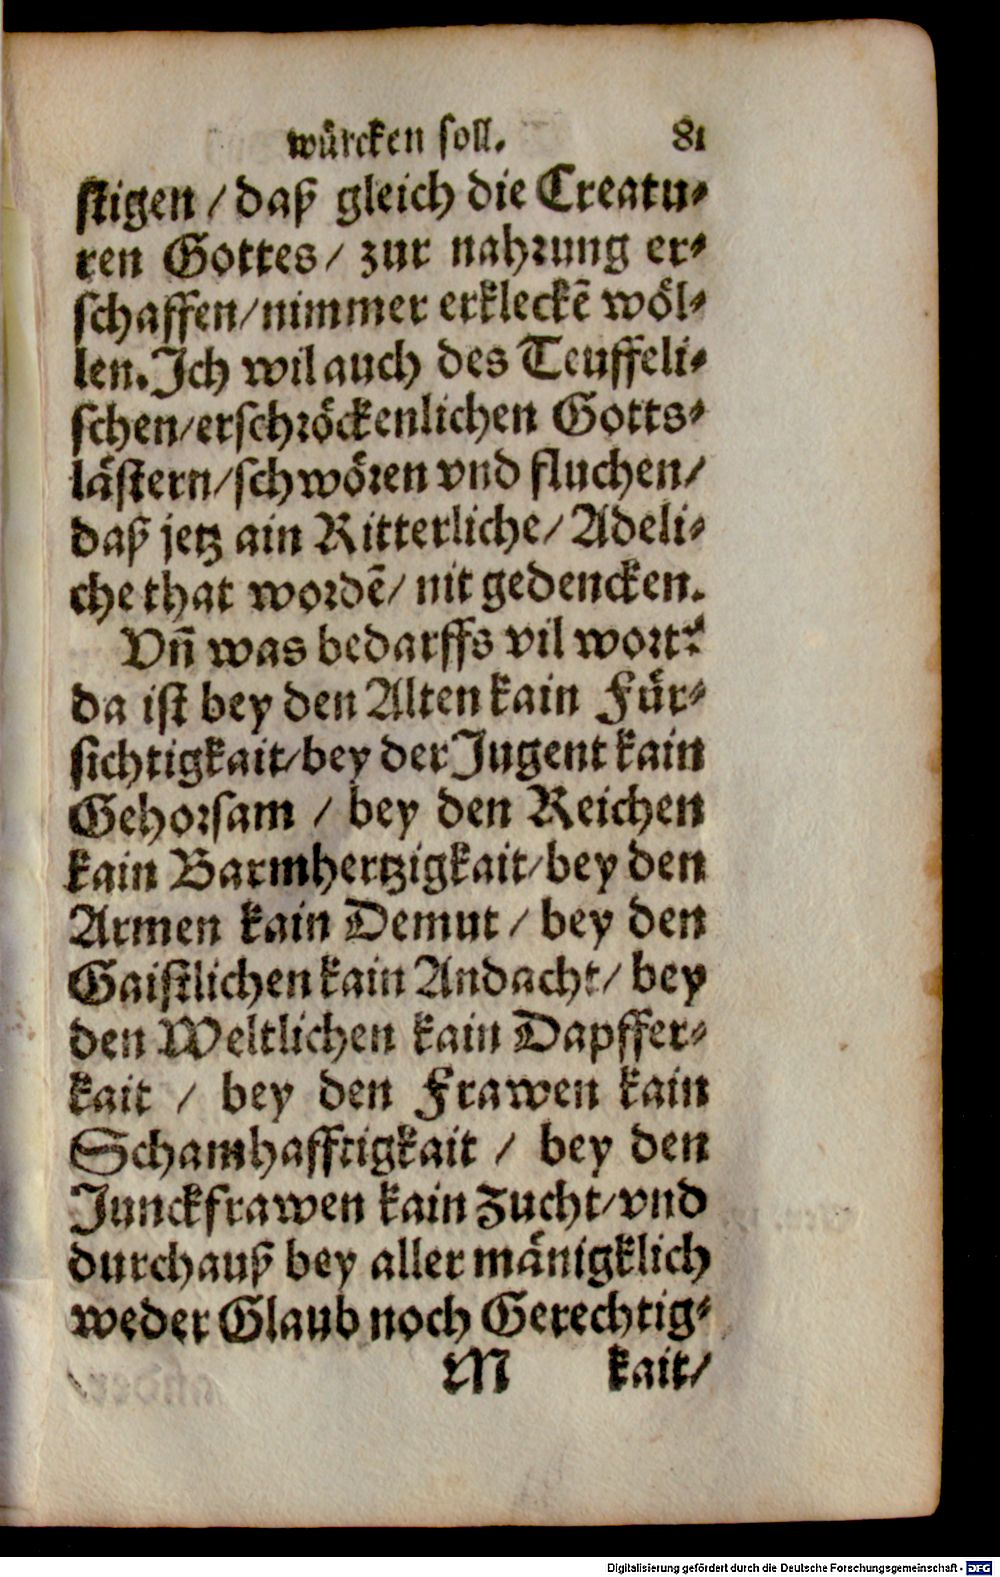 wůrcken soll. 81
stigen / daß gleich die Creatu⸗
ren Gottes / zur nahrung er⸗
schaffen / nimmer erkleckē wöl⸗
len. Ich wil auch des Teuffeli⸗
schen / erschröckenlichen Gotts⸗
lästern / schwören vnd fluchen /
daß jetz ain Ritterliche / Adeli⸗
che that wordē / nit gedencken.
Vñ was bedarffs vil wort?
da ist bey den Alten kain Für⸗
sichtigkait / bey der Jugent kain
Gehorsam / bey den Reichen
kain Barmhertzigkait / bey den
Armen kain Demut / bey den
Gaistlichen kain Andacht / bey
den Weltlichen kain Dapffer⸗
kait / bey den Frawen kain
Schamhafftigkait / bey den
Junckfrawen kain Zucht / vnd
durchauß bey aller mänigklich
weder Glaub noch Gerechtig⸗
M kait /
Digitalisierung gefördert durch die Deutsche Forschungsgemeinschaft - DFG